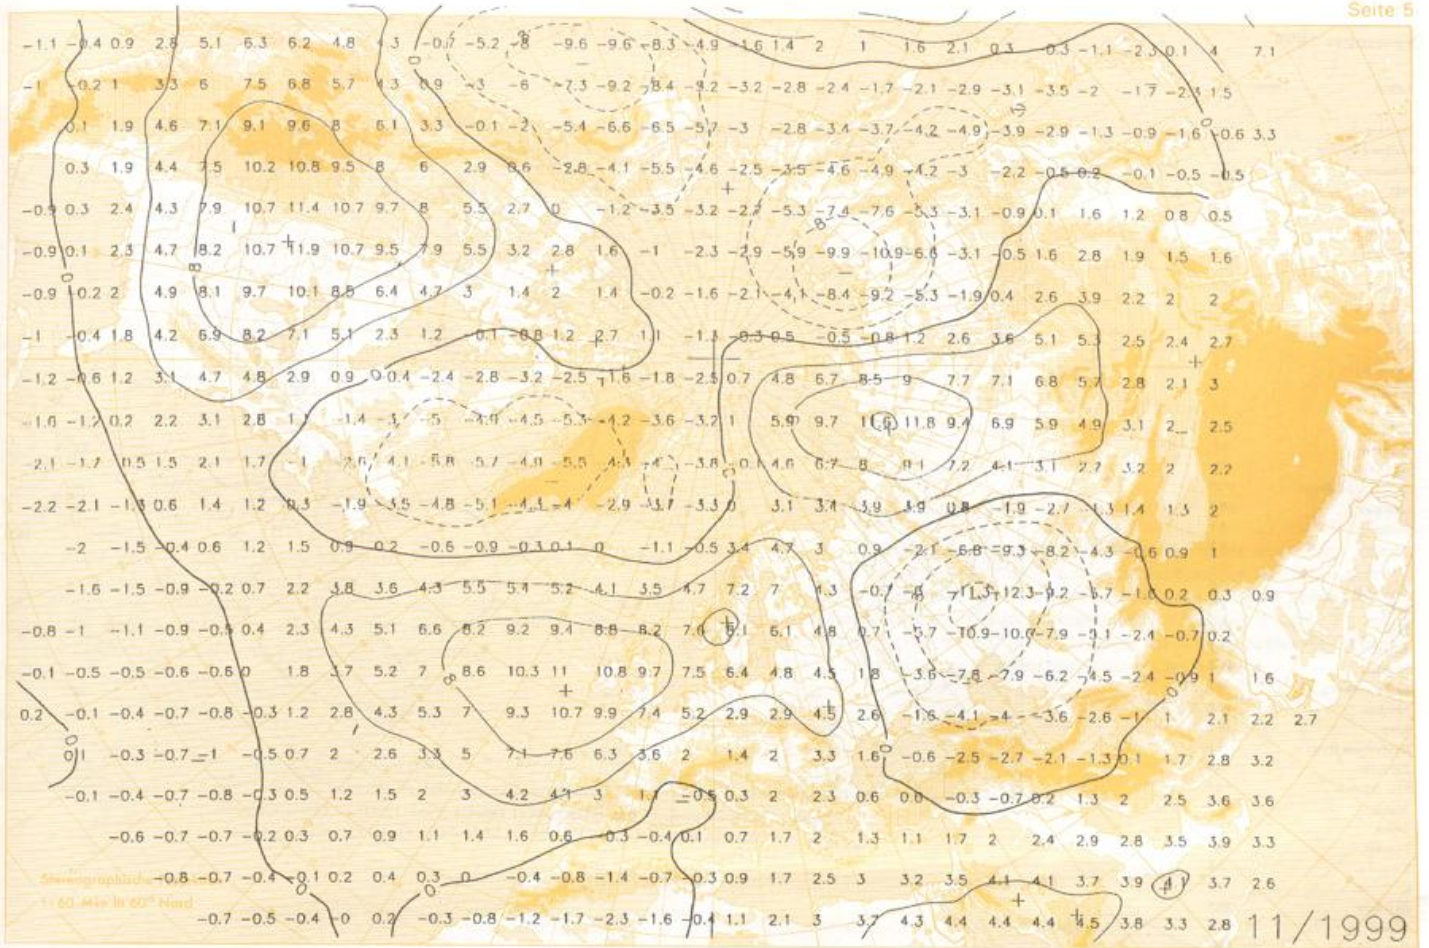 Seite 5
-1.1 -0.4 0.9 2.8 5.1 6.3 6.2 4.8 4.3 -0.7 -5.2 -8 -9.6 -9.6 -8.3 -4.9 -1.6 1.4 2 1 1.6 2.1 0.3 -0.3 -1.1 -2.3 0.1 4 7.1
-1 -0.2 1 3.3 6 7.5 6.8 5.7 4.3 0.9 -3 -6 -7.3 -9.2 -8.4 -3.2 -2.8 -2.4 -1.7 -2.1 -2.9 -3.1 -3.5 -2 -1.7 -2.3 1.5
0.1 1.9 4.6 7.1 9.1 9.6 8 6.1 3.3 -0.1 -2 -5.4 -6.6 -6.5 -5.7 -3 -2.8 -3.4 -3.7 -4.2 -4.9 -3.9 -2.9 -1.3 -0.9 -1.6 -0.6 3.3
0.3 1.9 4.4 7.5 10.2 10.8 9.5 8 6 2.9 0.6 -2.8 -4.1 -5.5 -4.6 -2.5 -3.5 -4.6 -4.9 -4.2 -3 -2.2 -0.5 0.2 -0.1 -0.5 -0.5
-0.9 0.3 2.4 4.3 7.9 10.7 11.4 10.7 9.7 8 5.5 2.7 0 -1.2 -3.5 -3.2 -2.7 -5.3 -7.4 -7.6 -5.3 -3.1 -0.9 0.1 1.6 1.2 0.8 0.5
-0.9 0.1 2.3 4.7 8.2 10.7 11.9 10.7 9.5 7.9 5.5 3.2 2.8 1.6 -1 -2.3 -2.9 -5.9 -9.9 -10.9 -6.6 -3.1 -0.5 1.6 2.8 1.9 1.5 1.6
-0.9 -0.2 2 4.9 8.1 9.7 10.1 8.5 6.4 4.7 3 1.4 2 1.4 -0.2 -1.6 -2.1 -4.1 -8.4 -9.2 -5.3 -1.9 0.4 2.6 3.9 2.2 2 2
-1 -0.4 1.8 4.2 6.9 8.2 7.1 5.1 2.3 1.2 -0.1 -0.8 1.2 2.7 1.1 -1.3 -0.3 0.5 -0.5 -0.8 1.2 2.6 3.6 5.1 5.3 2.5 2.4 2.7
-1.2 -0.6 1.2 3.1 4.7 4.8 2.9 0.9 0.4 -2.4 -2.8 -3.2 -2.5 -1.6 -1.8 -2.5 0.7 4.8 6.7 8.5 9 7.7 7.1 6.8 5.7 2.8 2.1 3
-1.2 0.2 2.2 3.1 2.8 -1.4 -5 -4.5 -5.3 -4.2 -3.6 -3.2 1 5.9 9.7 11.8 9.4 6.9 5.9 4.9 3.1 2 2.5
-2.1 -1.7 0.5 1.5 2.1 1.7 -5.8 -5.7 -5.5 -3.8 -0.1 4.6 6.7 8 9.1 7.2 4.1 3.1 2.7 3.2 2 2.2
-2.2 -2.1 -1.3 0.6 1.4 1.2 0.3 -1.9 -3.5 -4.8 -5.1 -4.3 -4 -2.9 -3.7 -3.3 0 3.1 3.4 3.9 3.9 0.8 -1.9 -2.7 -1.3 1.4 1.3 2
-2 -1.5 -0.4 0.6 1.2 1.5 0.9 0.2 -0.6 -0.9 -0.3 0.1 0 -1.1 -0.5 3.4 4.7 3 0.9 -2.1 -6.8 -9.3 -8.2 -4.3 -0.6 0.9 1
-1.6 -1.5 -0.9 -0.2 0.7 2.2 3.8 3.6 4.3 5.5 5.4 5.2 4.1 3.5 4.7 7.2 7 4.3 -0.7 -11.3 -12.3 -9.2 -5.7 -1.6 0.2 0.3 0.9
-0.8 -1 -1.1 -0.9 -0.5 0.4 2.3 4.3 5.1 6.6 8.2 9.2 9.4 8.8 8.2 6.1 4.8 0.7 -5.7 -10.9 -7.9 -2.4 -0.7 0.2
-0.1 -0.5 -0.5 -0.6 -0.6 0 1.8 3.7 5.2 7 8.6 10.3 11 10.8 9.7 7.5 6.4 4.8 4.5 1.8 -3.6 -7.8 -7.9 -6.2 -4.5 -2.4 -0.9 1 1.6
0.2 -0.1 -0.4 -0.7 -0.8 -0.3 1.2 2.8 4.3 5.3 7 9.3 10.7 9.9 7.4 5.2 2.9 2.9 4.5 2.6 -1.6 -4.1 -4 -3.6 -2.6 -1 1 2.1 2.2 2.7
-0.3 -0.7 -1 -0.5 0.7 2 2.6 3.3 5 7.1 7.6 6.3 3.6 2 1.4 2 3.3 1.6 -0.6 -2.5 -2.7 -2.1 -1.3 0.1 1.7 2.8 3.2
-0.1 -0.4 -0.7 -0.8 -0.3 0.5 1.2 1.5 2 3 4.2 3 -0.5 0.3 2 2.3 0.6 -0.3 -0.7 0.2 1.3 2 2.5 3.6 3.6
-0.6 -0.7 -0.7 -0.2 0.3 0.7 0.9 1.1 1.4 1.6 0.6 -0.3 -0.4 0.1 0.7 1.7 2 1.3 1.1 1.7 2 2.4 2.9 2.8 3.5 3.9 3.3
-0.8 -0.7 -0.4 -0.1 0.2 0.4 0.3 0 -0.4 -0.8 -1.4 -0.7 -0.3 0.9 1.7 2.5 3 3.2 3.5 4.1 4.1 3.7 3.9 4.1 3.7 2.6
-0.7 -0.5 -0.4 -0 0.2 -0.3 -0.8 -1.2 -1.7 -2.3 -1.6 -0.4 1.1 2.1 3 3.7 4.3 4.4 4.4 4.4 4.5 3.8 3.3 2.8
Stereographische
1:60 Mio in 60° Nord
11/1999